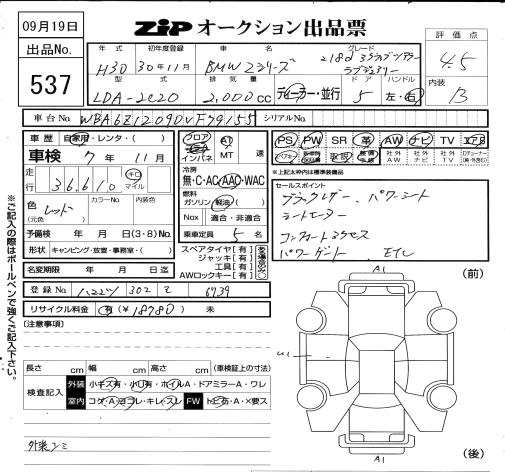 09月19日
ZIP オークション出品票
出品No.
537
評価点
4.5
内装
B
年式
初年度登録
車名
グレード
H30 30年11月 BMW 2シリーズ
218d
型式
排気量
ドア
ハンドル
LDA-2C20 2,000cc ディーラー・並行 5 左・右
車台No.
シリアルNo.
車歴 自家用・レンタ・( )
車検 7年 11月
走行 36,610 キロ マイル
色 レッド
(元色)
カラーNo.
内装色
予備検 年 月 日(3・8)No.
形状 キャンピング・放置・事務室・( )
名変期限 年 月 日迄
フロア
インパネ
AT
MT
速
冷房
無・C・AC・AAC・WAC
燃料
ガソリン・軽油・( )
Nox 適合・非適合
乗車定員 5名
スペアタイヤ[有・]
ジャッキ[有・]
工具[有・]
AWロックキー[有・]
PS PW SR 革 AW ナビ TV エアB
社外AW
社外ナビ
社外TV
※上記太枠内は標準装備品
セールスポイント
ブラックレザー、パワーシート
シートヒーター
コンフォートアクセス
パワーゲート ETC
登録No.
302 6939
リサイクル料金 有(¥18780) 未
[注意事項]
長さ cm 幅 cm 高さ cm (車検証上の寸法)
検査記入
外装 小キズ有・小U有・ホイルA・ドアミラーA・ワレ
室内 コゲ・A・ヨゴレ・キレ・スレ
FW トビ石・A・X要ス
外装シミ
A1
(前)
U1
A1
(後)
※ご記入の際はボールペンで強くご記入下さい。